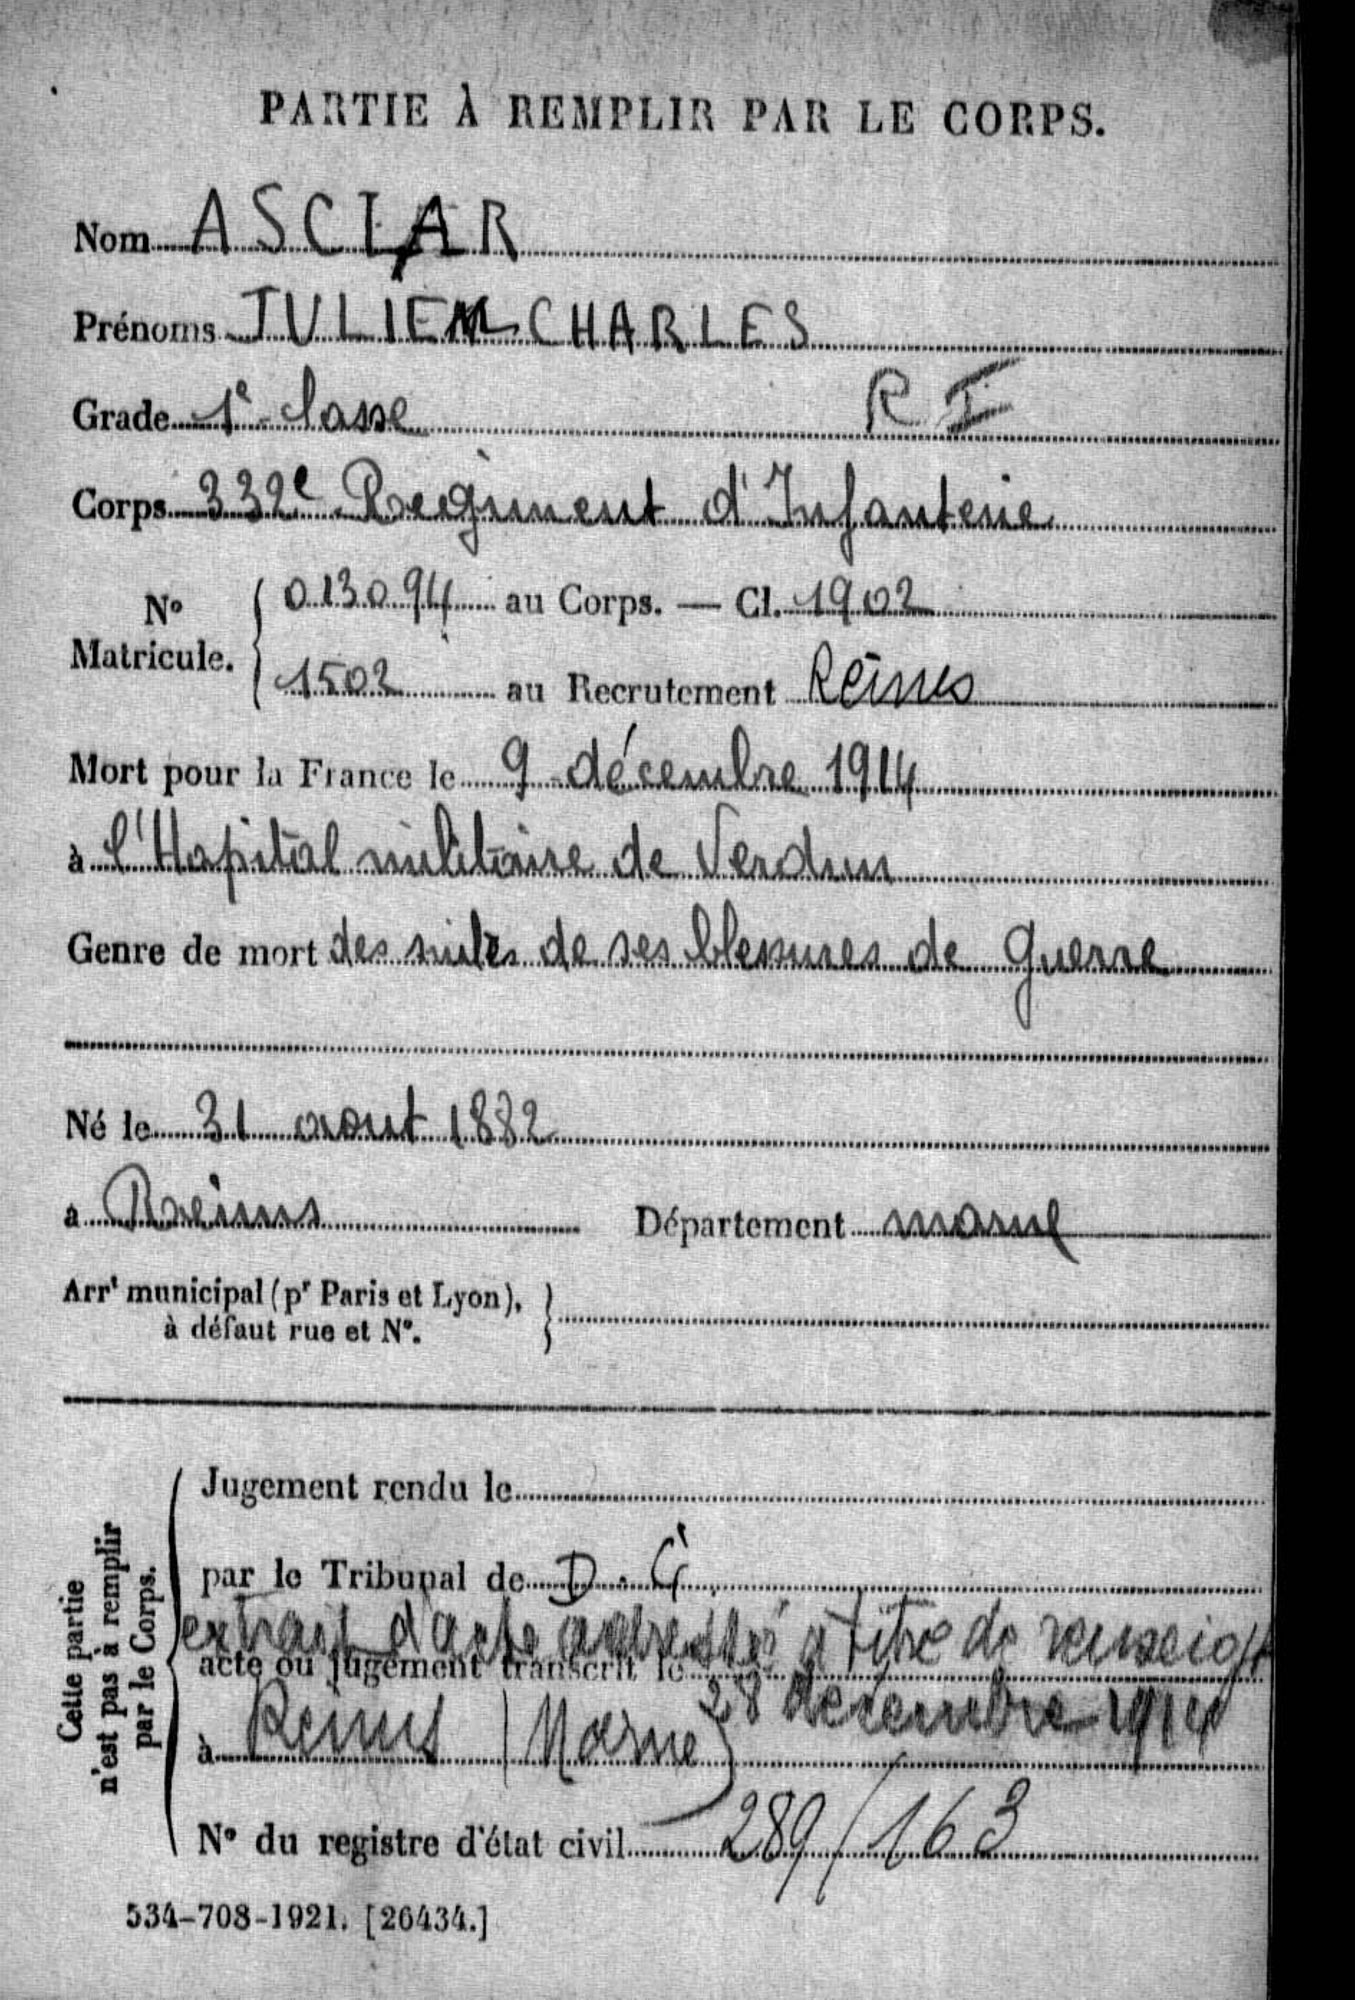 PARTIE À REMPLIR PAR LE CORPS.
Nom ASCLAR
Prénoms JULIEN CHARLES
Grade 1e classe R I
Corps 332e Regiment d'Infanterie
No Matricule. 013094 au Corps. — Cl. 1902
1502 au Recrutement Reims
Mort pour la France le 9 décembre 1914
à l'Hopital militaire de Verdun
Genre de mort des suites de ses blessures de Guerre
Né le 31 aout 1882
à Reims Département Marne
Arrt municipal (pr Paris et Lyon),
à défaut rue et No.
Cette partie
n'est pas à remplir
par le Corps.
Jugement rendu le
par le Tribunal de D. G.
extrait d'acte adressé à titre de renseigt
acte ou jugement transcrit le 28 decembre 1914
à Reims (Marne)
No du registre d'état civil 289/163
534-708-1921. [26434.]